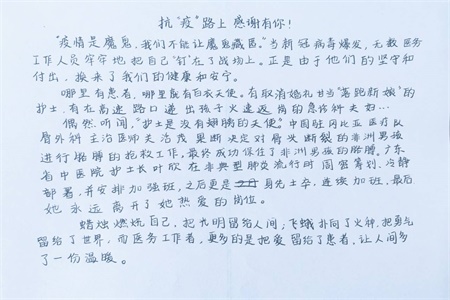 抗“疫”路上 感谢有你！
“疫情是魔鬼,我们不能让魔鬼藏匿。”当新冠病毒爆发，无数医务
工作人员牢牢地把自己“钉”在了战场上。正是由于他们的坚守和
付出，换来了我们的健康和安宁。
哪里有患者，哪里就有白衣天使。有取消婚礼甘当“落跑新娘”的
护士,有在高速路口递出孩子火速返岗的急诊科夫妇…
偶然听闻,“护士是没有翅膀的天使。”中国驻冈比亚医疗队
骨外科主治医师 果断决定对骨头断裂的非洲男孩
进行胳膊的抢救工作,最终成功保住了非洲男孩的胳膊,广东
省中医院护士长叶欣在非典型肺炎流行时周密筹划,冷静
部署,并安排加强班,之后更是身先士卒，连续加班,最后
她永远离开了她热爱的岗位。
蜡烛燃烧自己，把光明留给人间；飞蛾扑向了火种，把勇气
留给了世界，而医务工作者，更多的是把爱留给了患者，让人间多
了一份温暖。